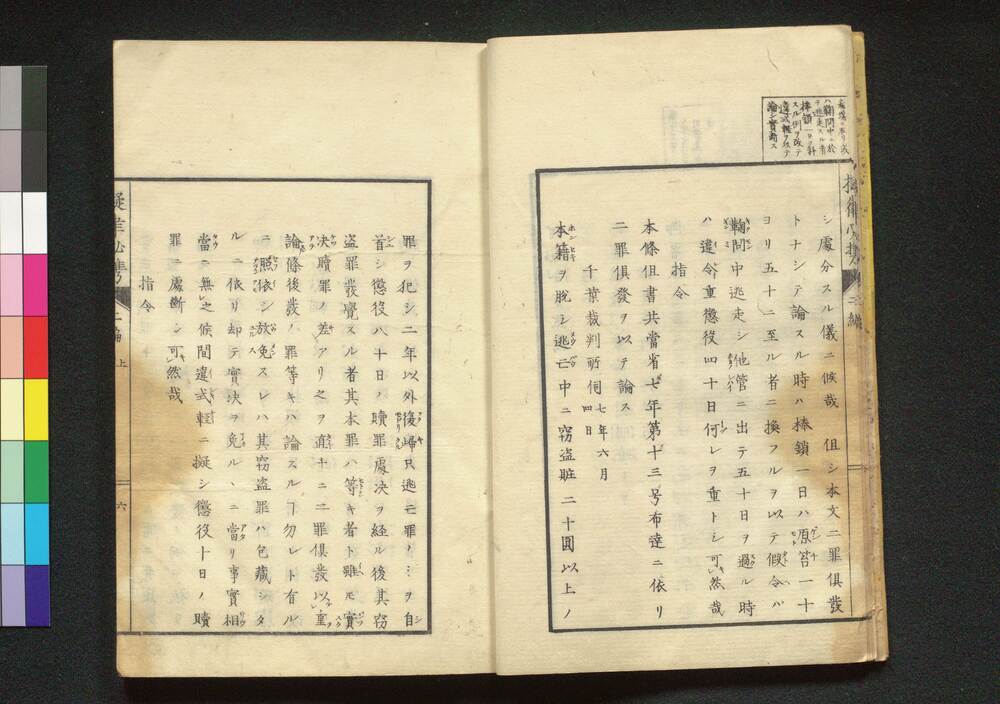 ハ鞫問中ニ於
テ逃走スル者
棒鎖一日ヲ科
スル例ヲ改テ
違式輕ヲ以テ
論シ實斷ス
シ處分スル儀ニ候哉 但シ本文二罪俱發
トナシテ論スル時ハ棒鎖一日ハ原笞一十
ヨリ五十ニ至ル者ニ換フルヲ以テ假令ハ
鞫問中逃走シ他管ニ出テ五十日ヲ過ル時
ハ違令重懲役四十日何レヲ重トシ可然哉
指令
本條但書共當省七年第十三号布達ニ依リ
二罪俱發ヲ以テ論ス
千葉裁判所伺 七年六月四日
本籍ヲ脱シ逃亡中ニ窃盜贓二十圓以上ノ
罪ヲ犯シ二年以外復歸只逃亡罪ノミヲ自
首シ懲役八十日ノ贖罪處決ヲ経ル後其窃
盜罪發覺スル者其本罪ハ等キ者ト雖モ實
決贖罪ノ差アリ之ヲ直チニ二罪俱發以重
論條後發ノ罪等キハ論スルヿ勿レト有ル
ニ照依シ放免スレハ其窃盜罪ハ包藏シタ
ルニ依リ却テ實決ヲ免ルヽニ當リ事實相
當ニ無之候間違式輕ニ擬シ懲役十日ノ贖
罪ニ處斷シ可然哉
指令
二編 上
六